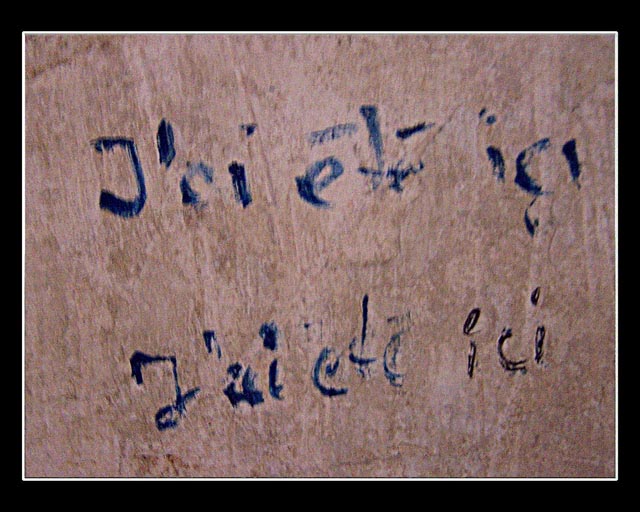 J'ai étè içi
J'ai été ici